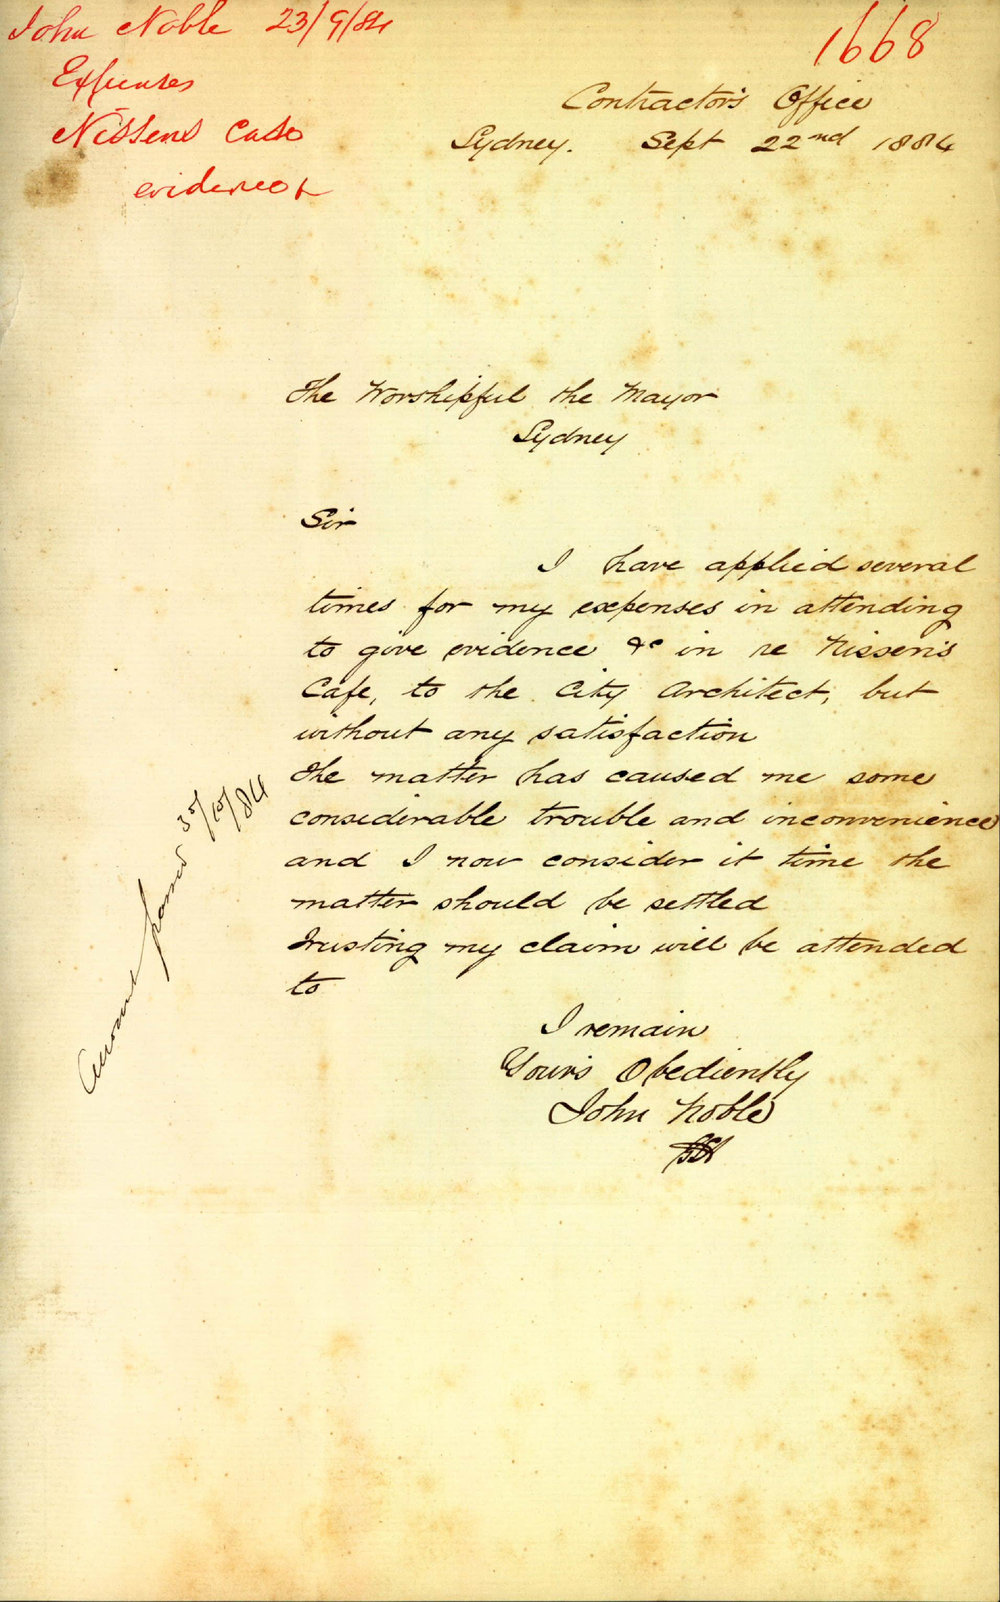 John Noble 23/9/84
Expenses
Nissens Case
evidence
1668
Contractor's Office
Sydney. Sept 22nd 1884
The Worshipful the Mayor
Sydney
Sir
I have applied several
times for my expenses in attending
to give evidence &c in re Nissen's
Cafe, to the City Architect, but
without any satisfaction
The matter has caused me some
considerable trouble and inconvenience
and I now consider it time the
matter should be settled
Trusting my claim will be attended
to
I remain
Your's Obediently
John Noble
Amount passed /10/84